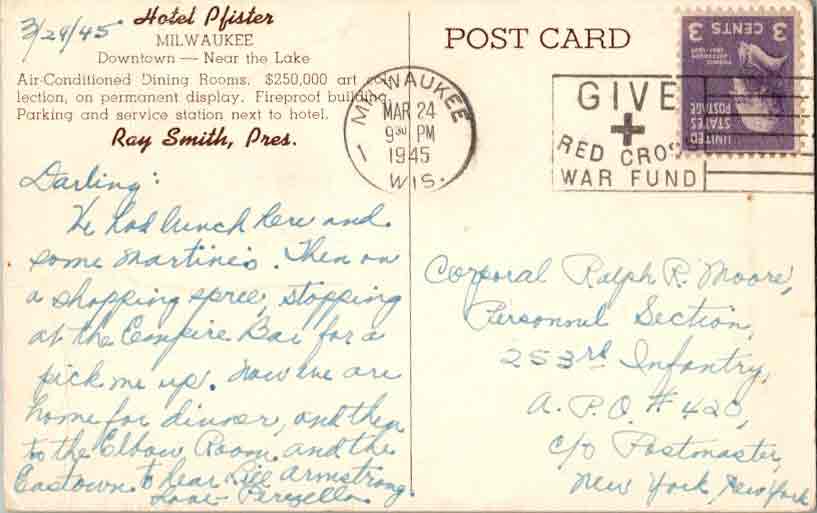 3/24/45
Hotel Pfister
MILWAUKEE
Downtown — Near the Lake
Air-Conditioned Dining Rooms. $250,000 art col-
lection, on permanent display. Fireproof building.
Parking and service station next to hotel.
Ray Smith, Pres.
Darling:
We had lunch here and
some martinis. Then on
a shopping spree, stopping
at the Empire Bar for a
pick me up. Now we are
home for dinner, and then
to the Elbow Room and the
Eastown to hear Armstrong.
Love
POST CARD
MILWAUKEE
MAR 24
9 30 PM
1945
WIS.
GIVE
RED CROSS
WAR FUND
3 CENTS 3
UNITED
STATES
POSTAGE
Corporal Ralph R. Moore,
Personnel Section,
253rd Infantry,
A.P.O. # 420,
c/o Postmaster,
New York, New York